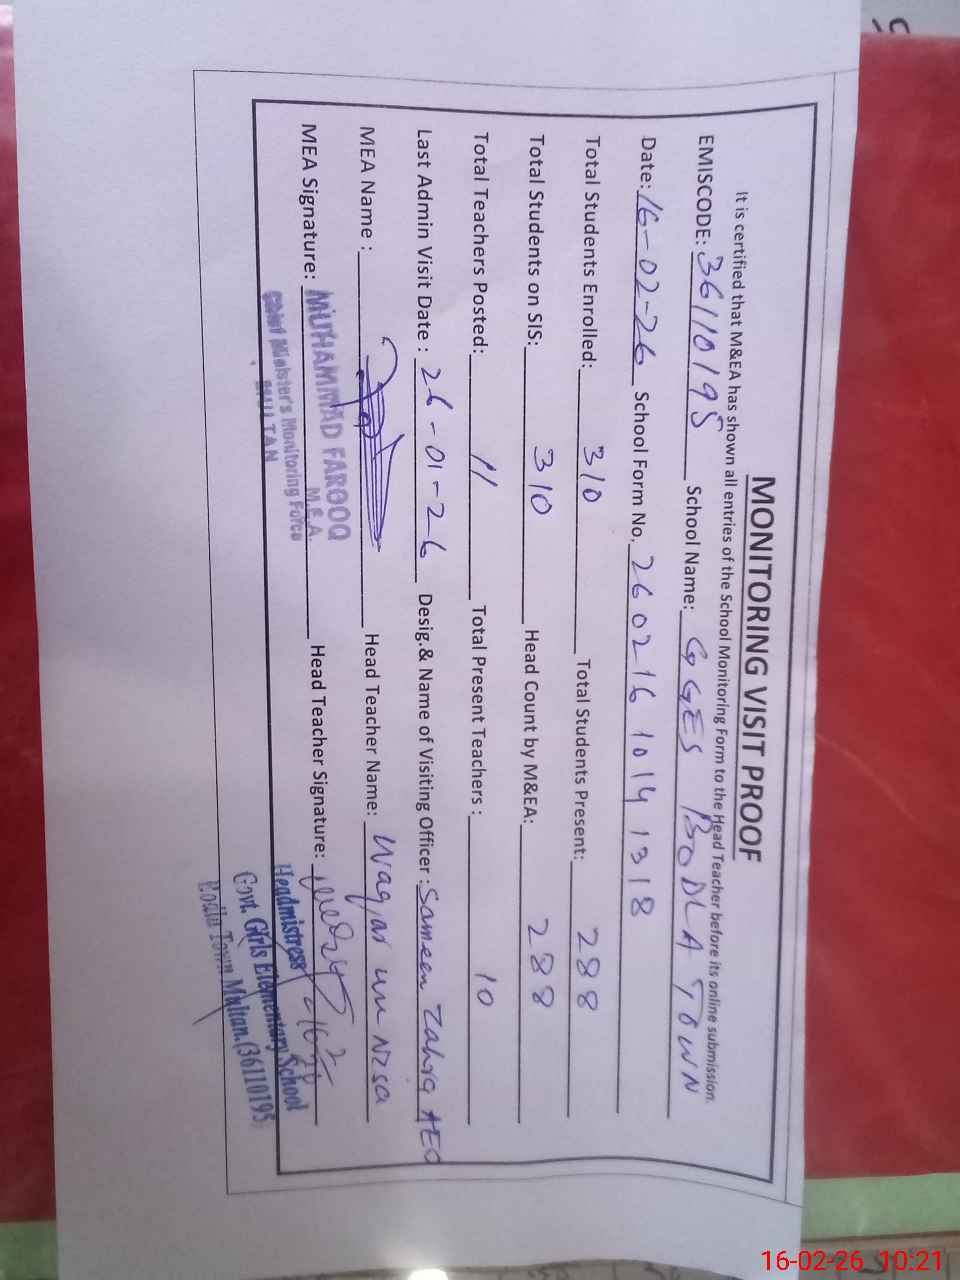 MONITORING VISIT PROOF
It is certified that M&EA has shown all entries of the School Monitoring Form to the Head Teacher before its online submission.
EMISCODE: 36110195 School Name: GGES BODLA TOWN
Date: 16-02-26 School Form No. 260216 1014 1318
Total Students Enrolled: 310 Total Students Present: 288
Total Students on SIS: 310 Head Count by M&EA: 288
Total Teachers Posted: 11 Total Present Teachers : 10
Last Admin Visit Date : 26-01-26 Desig.& Name of Visiting Officer : Sameen Zahra AEO
MEA Name : Head Teacher Name: Waqar un Nisa
MEA Signature: MUHAMMAD FAROOQ Head Teacher Signature:
M.E.A.
Chief Minister's Monitoring Force
MULTAN
Headmistress
Govt. Girls Elementary School
Bodla Town Multan.(36110195)
16-02-26 10:21